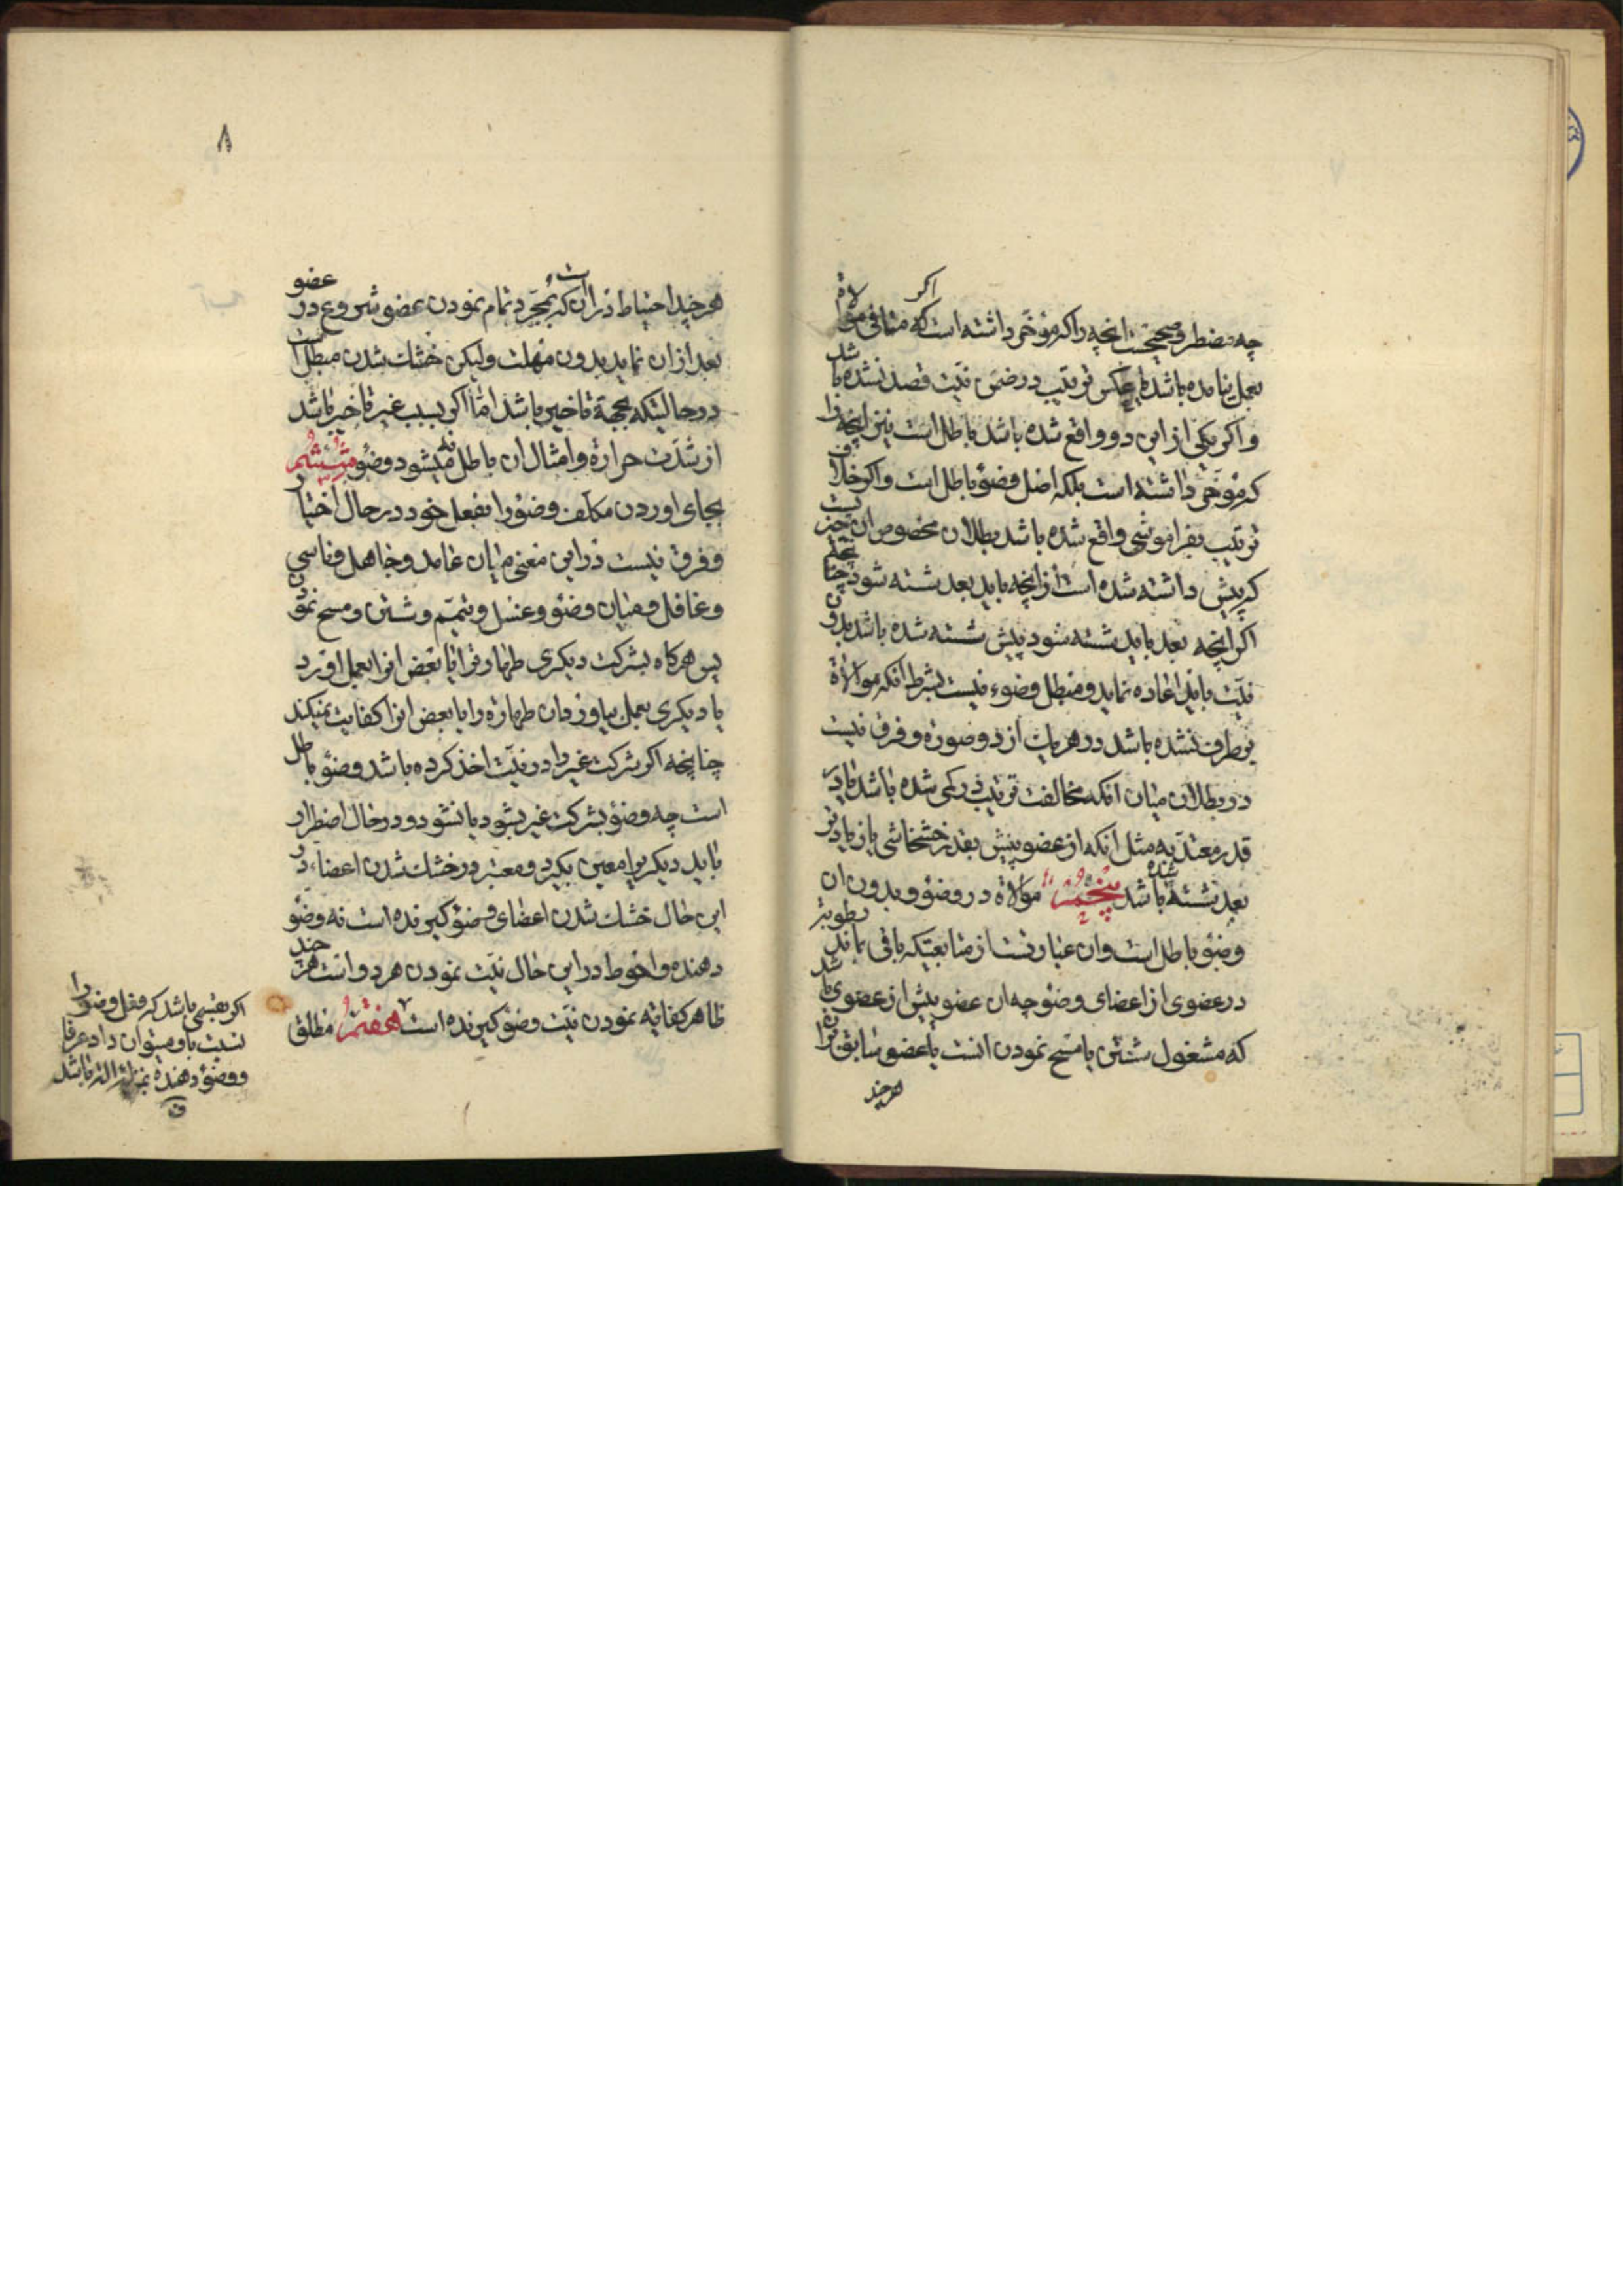 چه مضطر و صحیحست انچه را که مؤخر داشته است اکر که منافی موالاة
بعمل نیامده باشد یا عکس ترتیب در ضمن نیّت قصد نشده باشد
و اکر یکی از این دو واقع شده باشد باطل است نیز انچه را
که مؤخر داشته است بلکه اصل وضوء باطل است و اکر خلاف
ترتیب بفراموشی واقع شده باشد بطلان مخصوص ان چیزیست
که پیش داشته شده است از انچه باید بعد شسته شود چنانچه
اکر انچه بعد باید شسته شود پیش شسته شده باشد بدون
نیّت باید اعاده نماید و مبطل وضوء نیست بشرط انکه موالاة
برطرف نشده باشد در هر یک از دو صورة و فرق نیست
در بطلان میان انکه مخالفت ترتیب در کمی شده باشد یا در
قدر معتدّ به مثل انکه از عضو پیش بقدر خشخاشی یا زیادتر
بعد شسته شده باشد پنجم موالاة در وضوء و بدون ان
وضوء باطل است وان عبارتست از متابعتیکه باقی بماند رطوبتر
در عضوی از اعضای وضوء چه ان عضو پیش از عضوی باشد
که مشغول شستن یا مسح نمودن انست یا عضو سابق تر از ان
هرچند
۸
هرچند احتیاط در ان است که بمجرّد تمام نمودن عضو شروع در عضو
بعد از ان نماید بدون مهلت ولیکن خشک شدن مبطل است
در حالیتکه بجهة تاخیر باشد امّا اکر بسبب غیر تاخیر باشد
از شدّت حرارة و امثال ان باطل نمیشود وضوء ششم
بجای اوردن مکلّف وضوء را بفعل خود در حال اختیار
و فرق نیست در این معنی میان عامد و جاهل و ناسی
و غافل و میان وضوء و غسل و تیمّم و شستن و مسح نمودن
پس هرکاه بشرکت دیکری طهارة را یا بعض انرا بعمل اورد
یا دیکری بعمل بیاورد ان طهارة را یا بعض انرا کفایت نمیکند
چنانچه اکر شرکت غیر را در نیّت اخذ کرده باشد وضوء باطل
است چه وضوء بشرکت غیر بشود یا نشود و در حال اضطرار
باید دیکریرا معین بکیرد و معتبر در خشک شدن اعضاء در
این حال خشک شدن اعضای وضوء کیرنده است نه وضوء
دهنده و احوط در این حال نیّت نمودن هر دو است هرچند
ظاهر کفایه نمودن نیّت وضوء کیرنده است هفتم مطلق
اکر بقسمی باشد که فعل وضوء را
نسبت باو میتوان داد عرفا
و وضوء دهنده بمنزله اله باشد